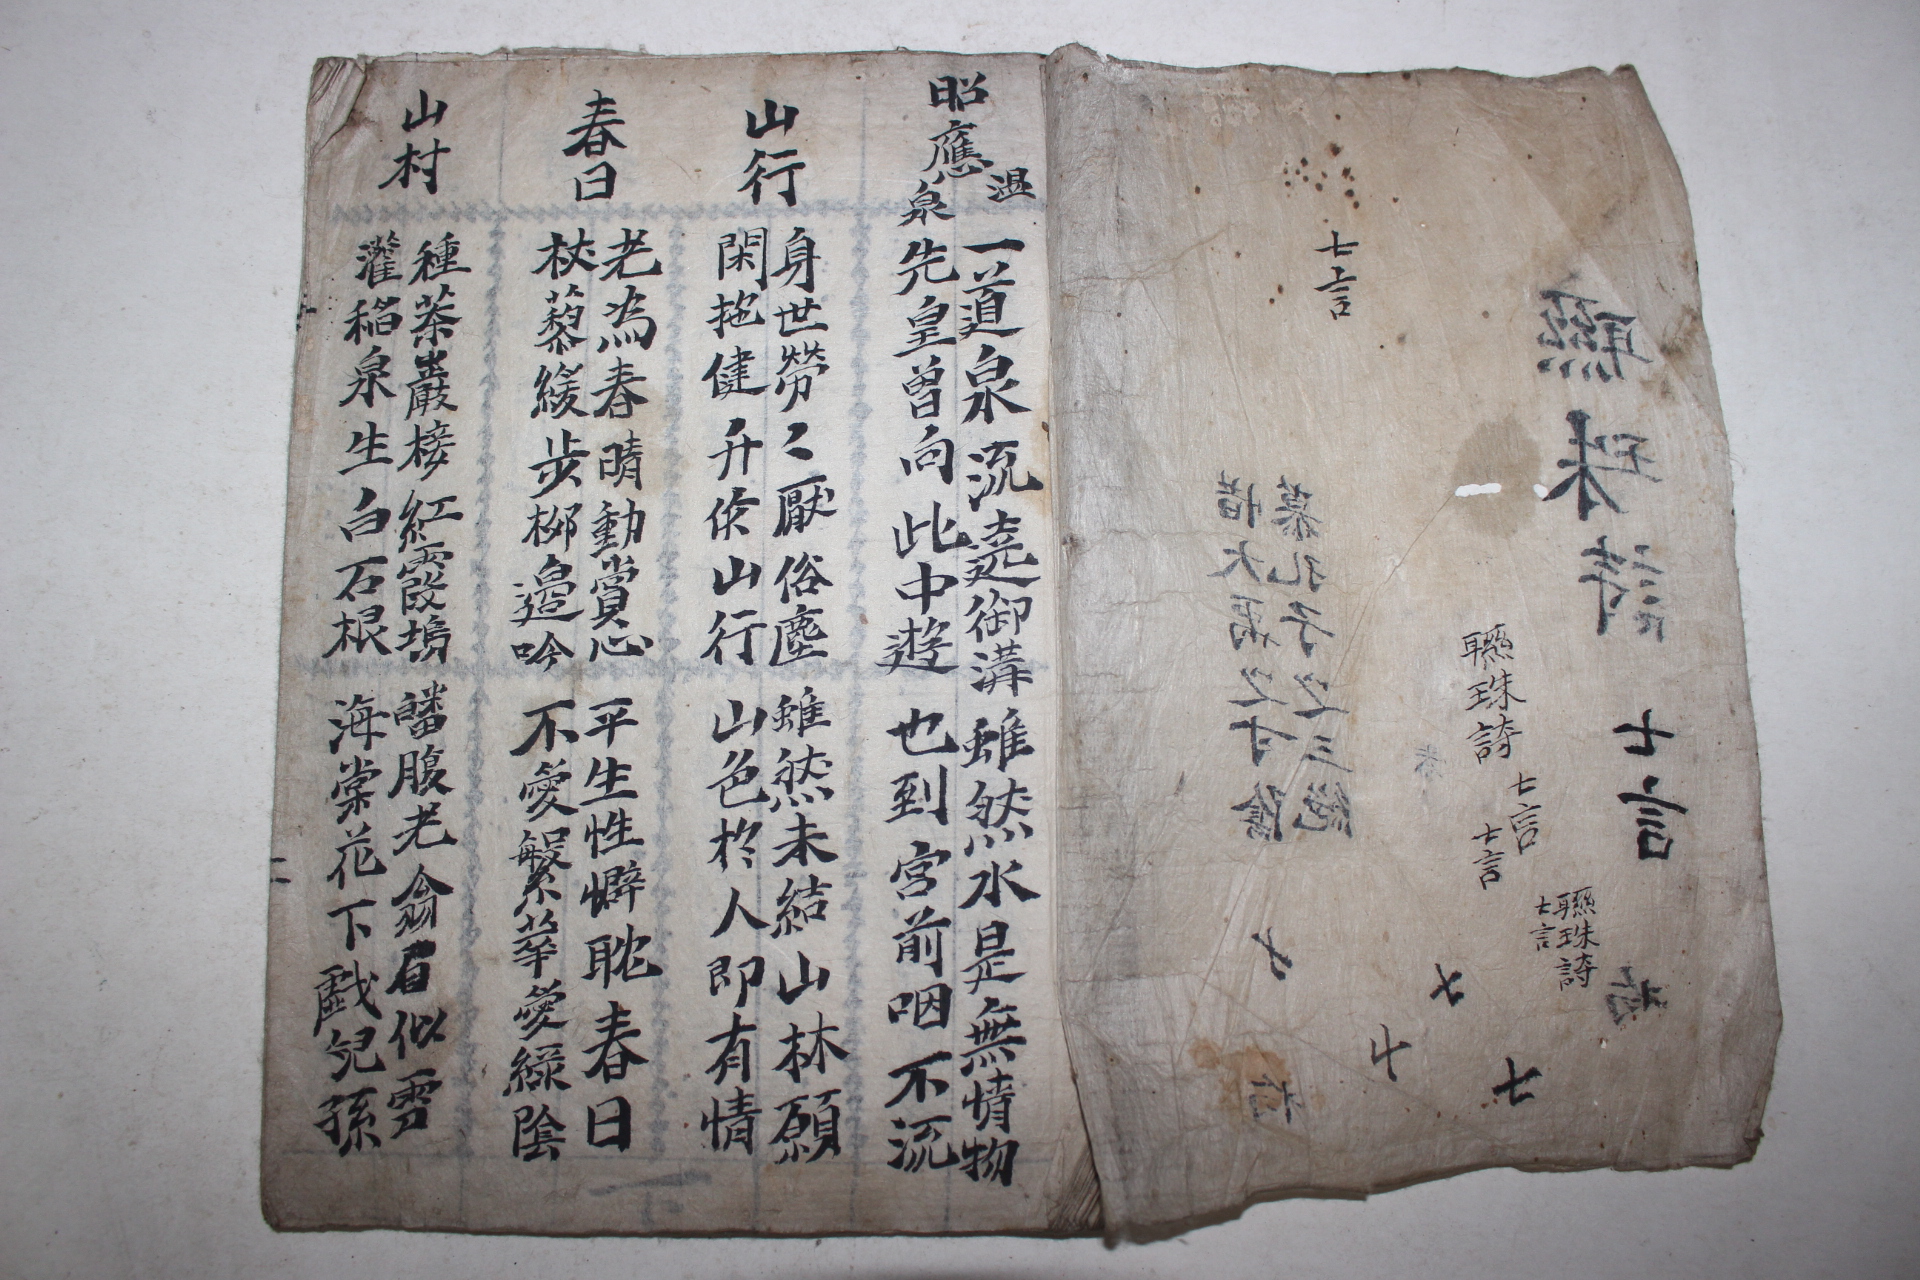 聯珠詩
七言
聯珠詩
七言
七言
聯珠詩
七言
七言
慕孔子之三絶
惜大禹之寸陰
昭應溫泉
一道泉流遶御溝
雖然水是無情物
先皇曾向此中遊
也到宮前咽不流
山行
身世勞〻厭俗塵
雖然未結山林願
閑拖健步侭山行
山色於人即有情
春日
老為春晴動賞心
平生性懶耽春日
杖藜緩步柳邊吟
不愛繁華愛綠陰
山村
種茶巖接紅霞塢
皤腹老翁眉似雪
灌稻泉生白石根
海棠花下戱兒孫